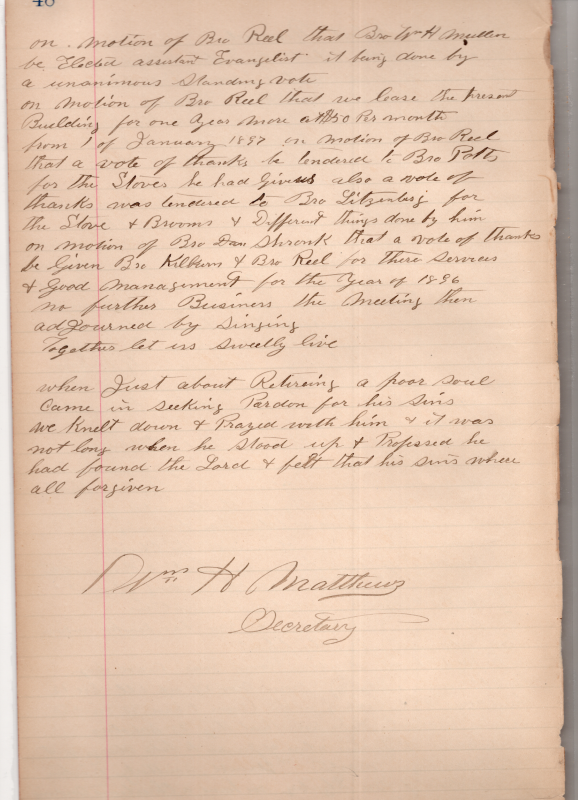 on motion of Bro Reel that Bro Wm H Mullen
be Elected assistant Evangelist it being done by
a unanimous Standing vote
on motion of Bro Reel that we lease the present
Building for one Year more at $50 Per month
from 1 of January 1897 on motion of Bro Reel
that a vote of thanks be tendered to Bro Potts
for the Stoves he had Given us also a vote of
thanks was tendered to Bro Litzenberg for
the Stove & Brooms & Different things done by him
on motion of Bro Dan Shronk that a vote of thanks
be Given Bro Kilburn & Bro Reel for there services
& Good management for the Year of 1896
no further Business the Meeting then
adJourned by Singing
Together let us sweetly live
when Just about Retireing a poor soul
Came in seeking Pardon for his sins
we Knelt down & Prayed with him & it was
not long when he stood up & Professed he
had found the Lord & felt that his sins where
all forgiven
Wm H Matthews
Secretary